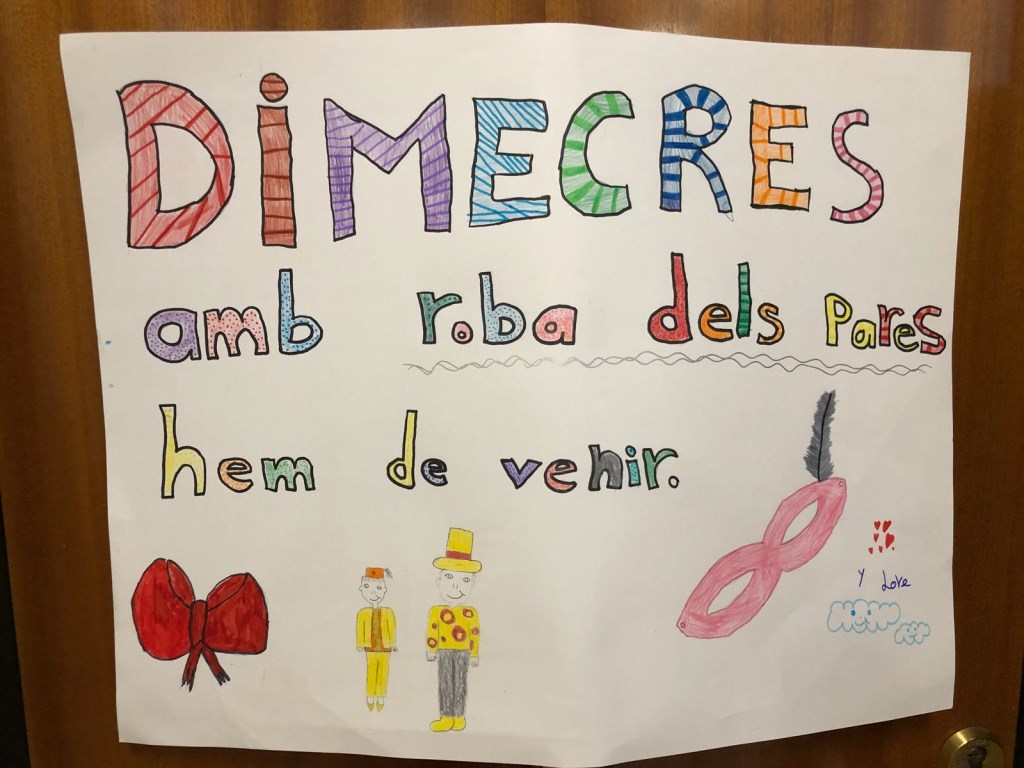 DiMECRES
amb roba dels Pares
hem de venir.
y Love